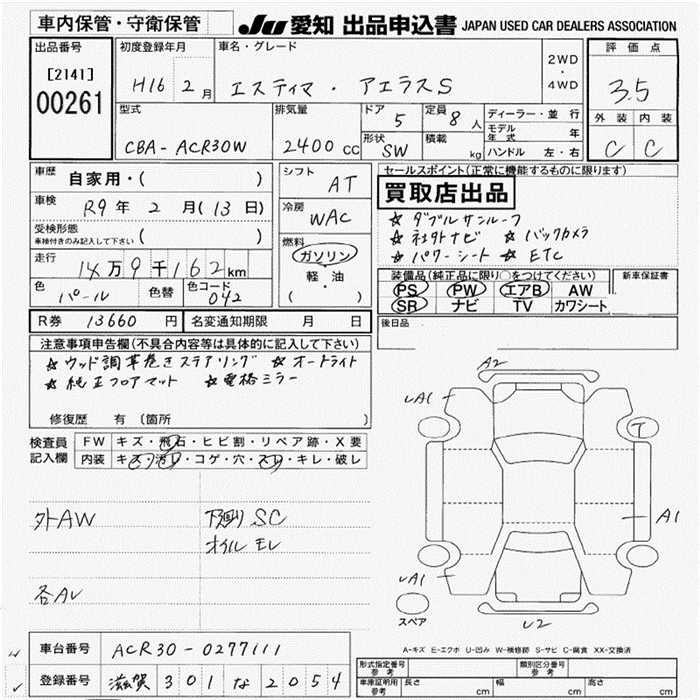 車内保管・守衛保管
JU 愛知 出品申込書 JAPAN USED CAR DEALERS ASSOCIATION
出品番号
[2141]
00261
初度登録年月
H16 2 月
車名・グレード
エスティマ ・ アエラスS
2WD
・
4WD
評価点
3.5
外装 内装
C C
型式
CBA- ACR30W
排気量
2400 CC
ドア
5
定員
8 人
形状
SW
積載
kg
ディーラー・並行
モデル年式 年
ハンドル 左・右
車歴
自家用・( )
車検
R9 年 2 月(13 日)
受検形態
車検付きのみ記入して下さい ( )
走行
14万9千162km
色
パール
色替
色コード
042
シフト
AT
冷房
WAC
燃料
ガソリン
軽・油
( )
セールスポイント(正常に機能するものに限ります)
買取店出品
☆ ダブルサンルーフ
☆ 社外ナビ ☆ バックカメラ
☆ パワーシート ☆ ETC
装備品(純正品に限り○をつけてください)
PS PW エアB AW
SR ナビ TV カワシート
新車保証書
後日品
R券 13660 円
名変通知期限 月 日
注意事項申告欄(不具合内容等は具体的に記入して下さい)
☆ ウッド調革巻きステアリング ☆ オートライト
☆ 純正フロアマット ☆ 電格ミラー
修復歴 有 〔箇所 〕
検査員
記入欄
FW キズ・飛石・ヒビ割・リペア跡・X要
内装 キズ・汚れ・コゲ・穴・スレ・キレ・破レ
外AW
下廻りSC
オイルモレ
各AU
A2
UA1
T
A1
UA1
U2
スペア
A-キズ E-エクボ U-凹み W-補修跡 S-サビ C-腐食 XX-交換済
車台番号 ACR30-0277111
登録番号 滋賀 301 な 2054
形式指定番号
参考
類別区分番号
参考
車庫証明用
参考
長さ cm 幅 cm 高さ cm